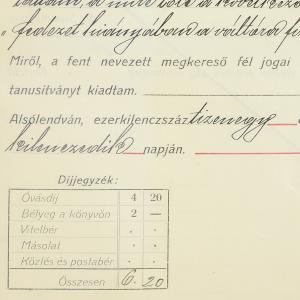 „fedezet hiányában a váltóra
Miről, a fent nevezett megkereső fél jogai
tanusitványt kiadtam.
Alsólendván, ezerkilenczszáztizenegy
kilenczedik napján.
Dijjegyzék:
Óvásdij 4 20
Bélyeg a könyvön 2 —
Vitelbér . .
Másolat . .
Közlés és postabér . .
Összesen 6. 20